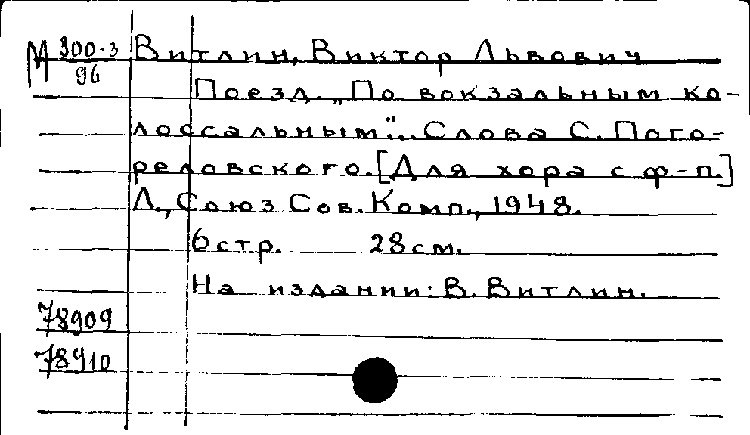 М 300-3/96
Витлин, Виктор Львович
Поезд. „По вокзальным ко-
лоссальным"... Слова С. Пого-
реловского. [Для хора с ф-п.]
Л., Союз Сов. Комп., 1948.
6 стр. 28 см.
На издании: В. Витлин.
78909
78910